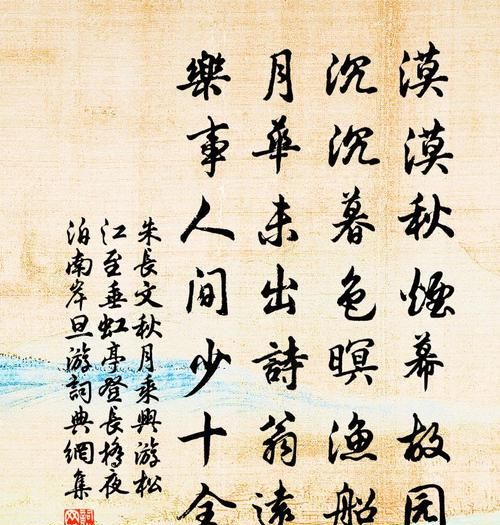 漠漠秋煙幕故园
沉沉暮色暝漁船
月華未出詩翁遠
樂事人间少十全
朱長文秋月乘興游松
江至垂虹亭登長橋夜
泊南岸旦游詞典網集